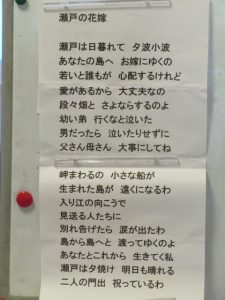 瀬戸の花嫁
瀬戸は日暮れて 夕波小波
あなたの島へ お嫁にゆくの
若いと誰もが 心配するけれど
愛があるから 大丈夫なの
段々畑と さよならするのよ
幼い弟 行くなと泣いた
男だったら 泣いたりせずに
父さん母さん 大事にしてね
岬まわるの 小さな船が
生まれた島が 遠くになるわ
入り江の向こうで
見送る人たちに
別れ告げたら 涙が出たわ
島から島へと 渡ってゆくのよ
あなたとこれから 生きてく私
瀬戸は夕焼け 明日も晴れる
二人の門出 祝っているわ